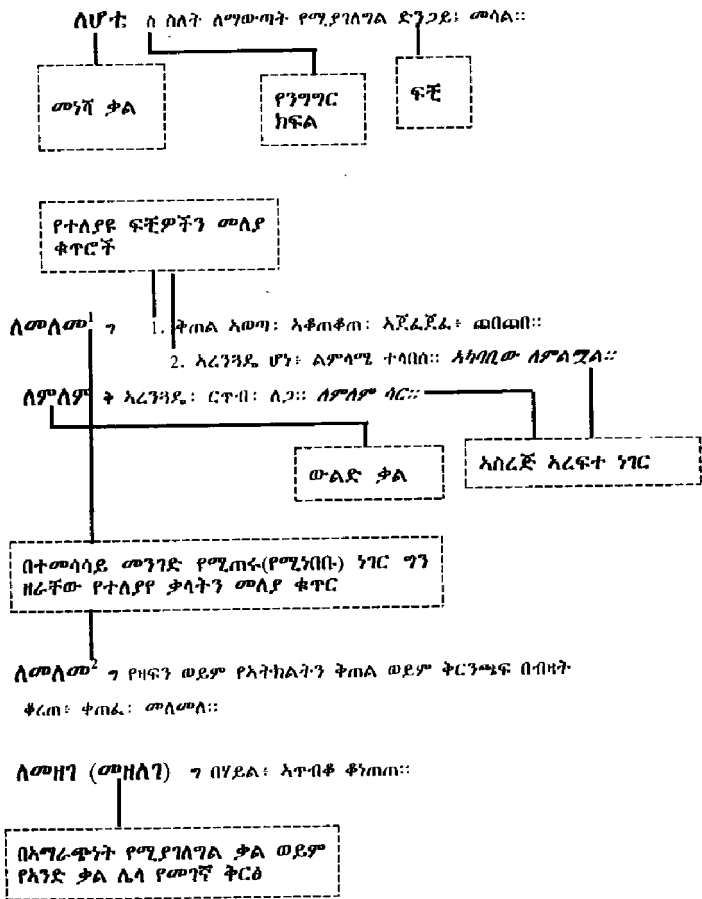 ለሆቴ ስ ስለት ለማውጣት የሚያገለግል ድንጋይ፤ መሳል።
መነሻ ቃል
የንግግር
ክፍል
ፍቺ
የተለያዩ ፍቺዎችን መለያ
ቁጥሮች
ለመለመ1 ግ 1. ቅጠል አወጣ፡ አቆጠቆጠ፡ አጀፈጀፈ፥ ጨበጨበ።
2. አረንጓዴ ሆነ፥ ልምላሜ ተላበሰ። ዳካባቢው ለምልሟል።
ለምለም ቅ አረንጓዴ፡ ርጥብ፡ ለጋ። ለምለም ሳር።
ውልድ ቃል
አስረጅ አረፍተ ነገር
በተመሳሳይ መንገድ የሚጠሩ(የሚነበቡ) ነገር ግን
ዘራቸው የተለያየ ቃላትን መለያ ቁጥር
ለመለመ2 ግ የዛፍን ወይም የአትክልትን ቅጠል ወይም ቅርንጫፍ በብዛት
ቆረጠ፥ ቀጠፈ፡ መለመለ።
ለመዘገ (መዘለገ) ግ በሃይል፥ አጥብቆ ቆነጠጠ።
በአማራጭነት የሚያገለግል ቃል ወይም
የአንድ ቃል ሌላ የመገኛ ቅርፅ